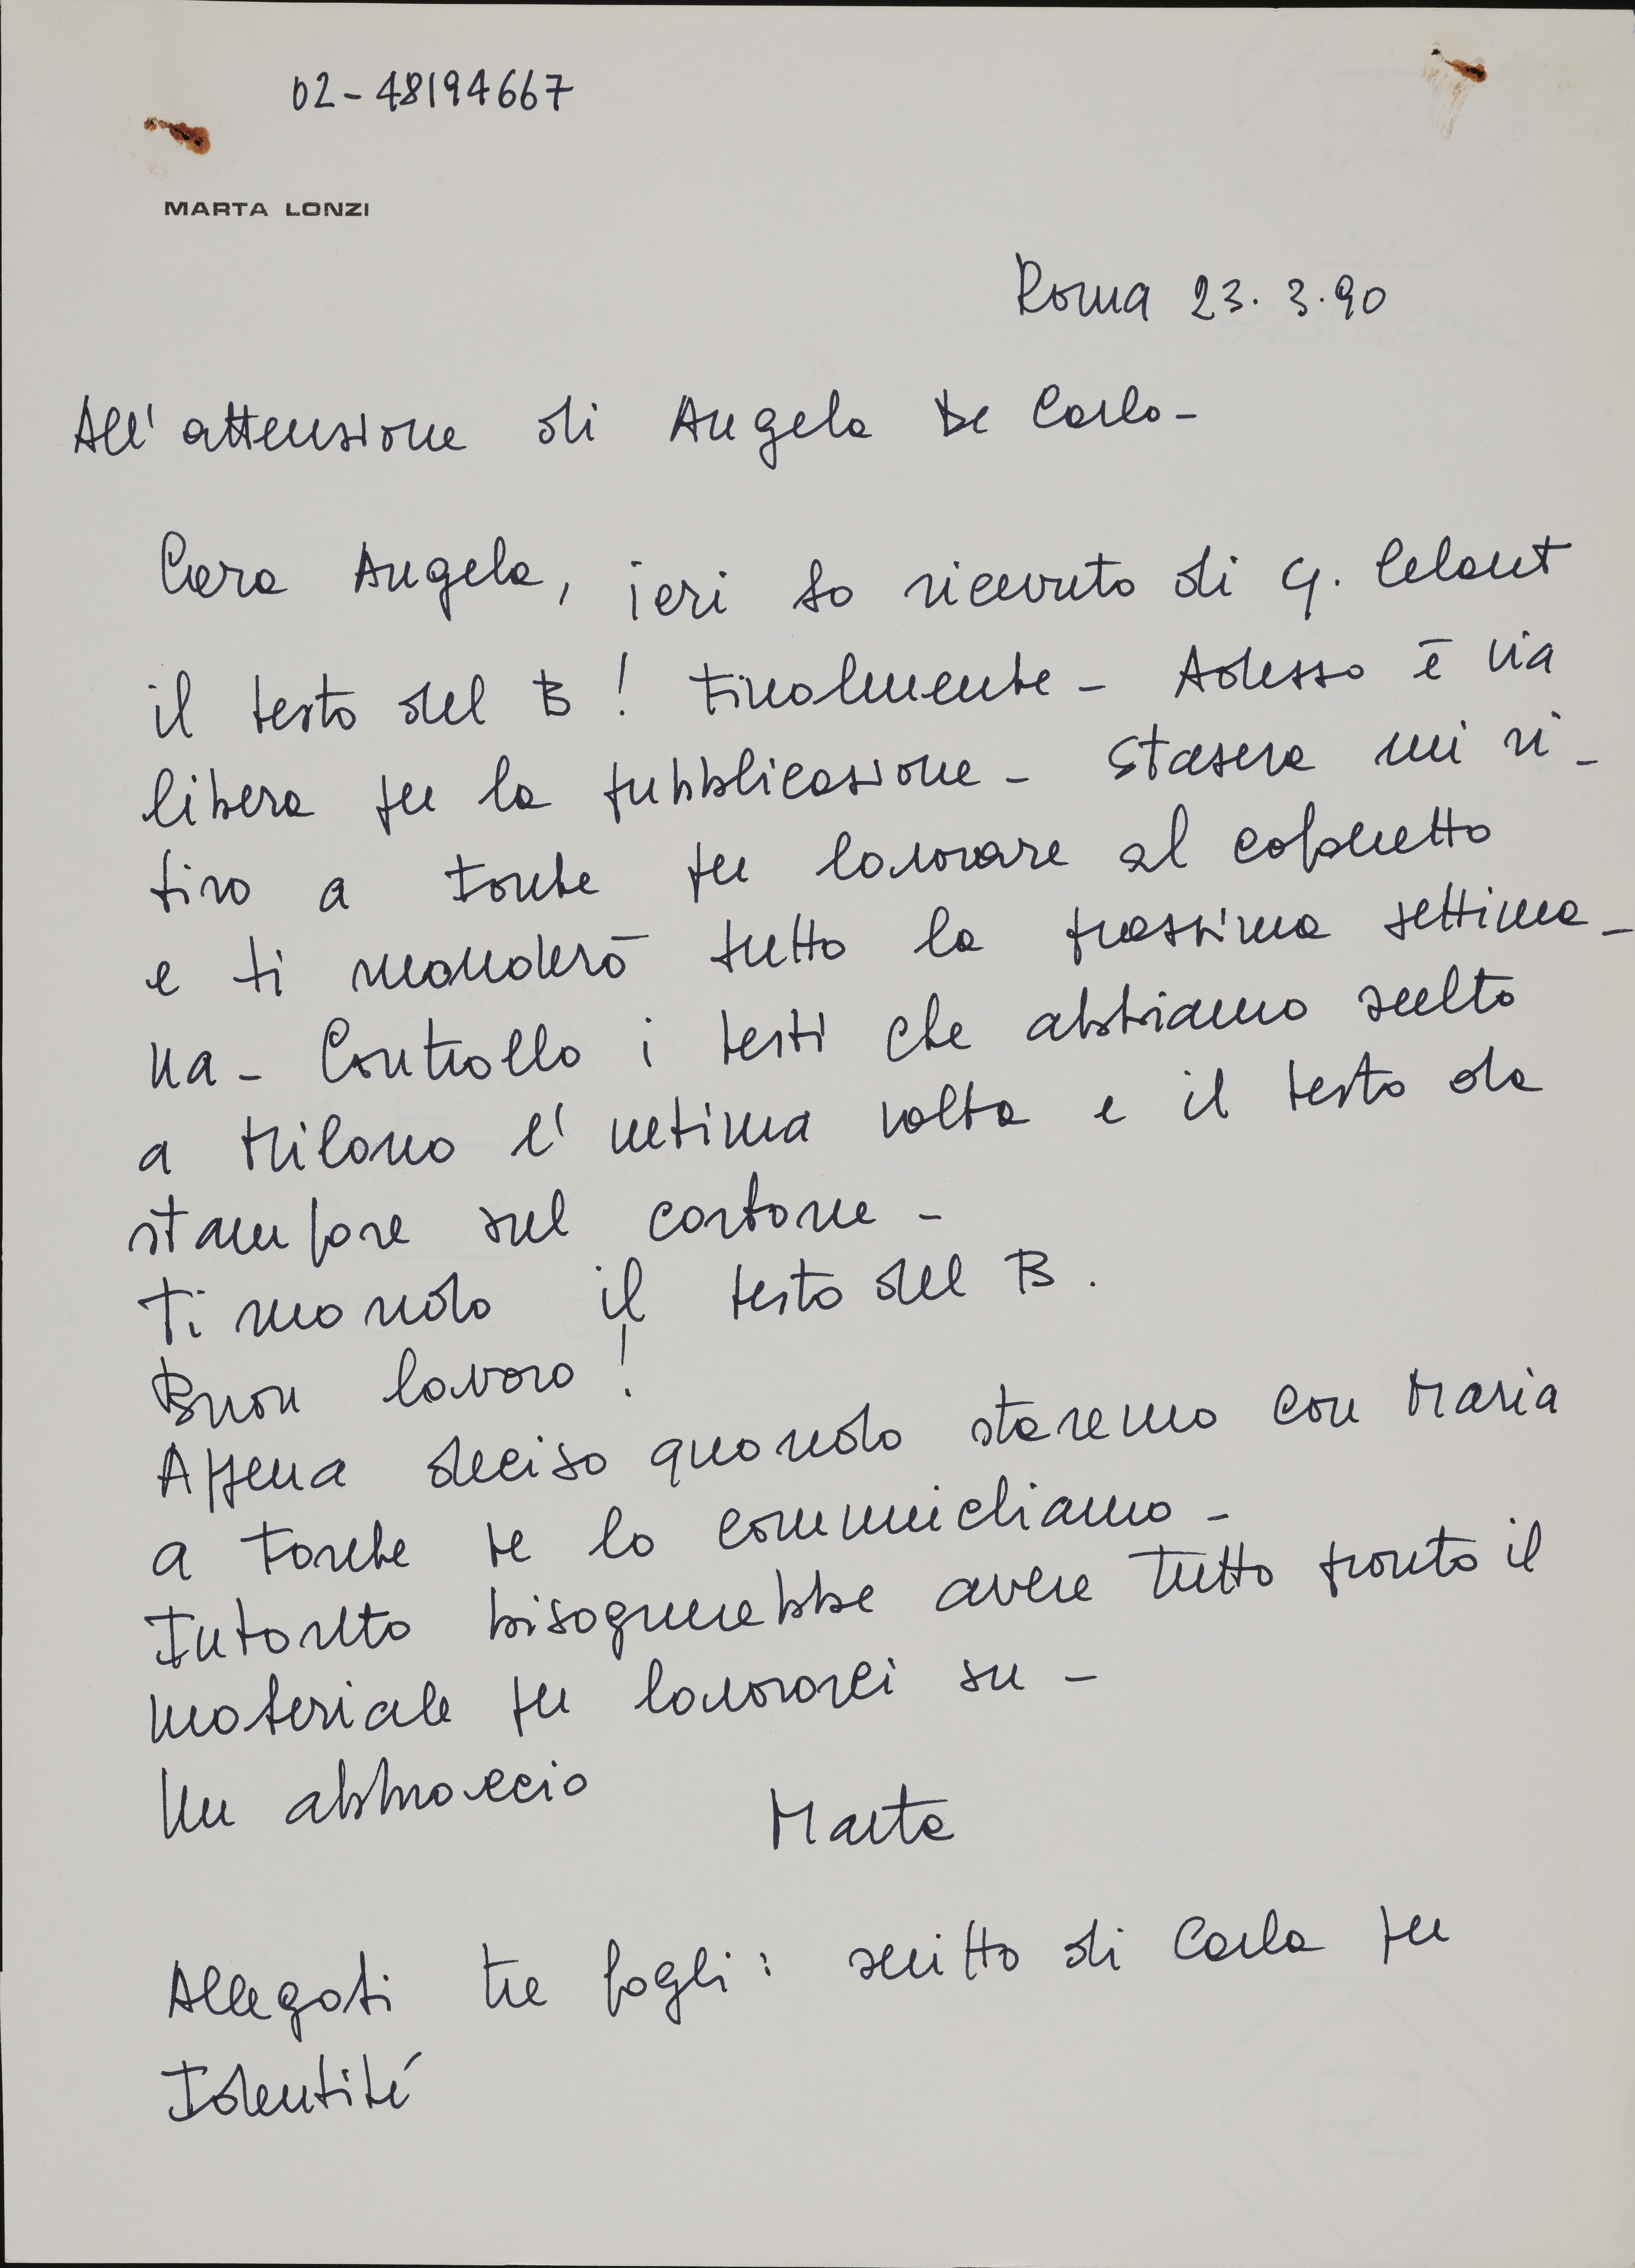 02-48194667
MARTA LONZI
Roma 23.3.90
All'attenzione di Angela De Carlo-
Cara Angela, ieri ho ricevuto di G. Celant
il testo del B! Finalmente - Adesso è via
libera per la pubblicazione - Stasera mi ri-
tiro a Fonte per lavorare al cofanetto
e ti manderò tutto la prossima settima-
na - Controllo i testi che abbiamo scelto
a Milano l'ultima volta e il testo da
stampare sul cartone -
Ti mando il testo del B.
Buon lavoro!
Appena deciso quando staremo con Maria
a Fonte te lo communichiamo -
Intanto bisognerebbe avere tutto pronto il
materiale per lavorarci su -
Un abbraccio
Marta
Allegati tre fogli: scritto di Carla per
Identité